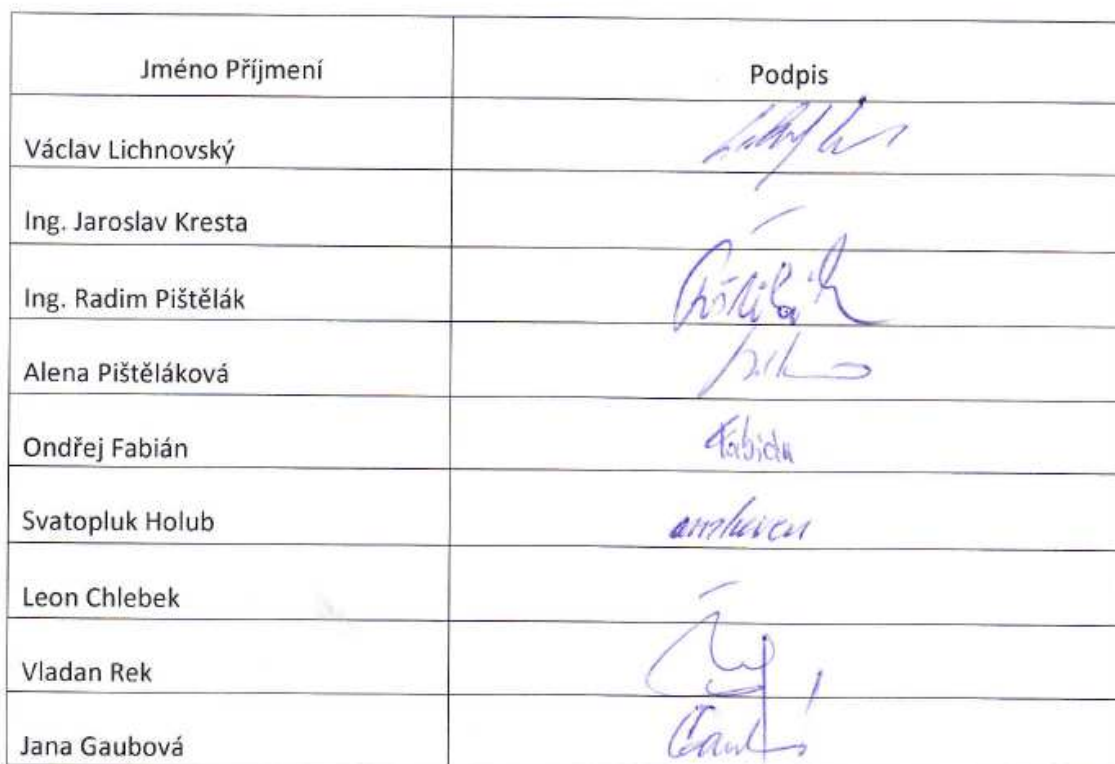 Jméno Příjmení Podpis
Václav Lichnovský
Ing. Jaroslav Kresta –
Ing. Radim Pištělák Pištělák
Alena Pištěláková
Ondřej Fabián Fabián
Svatopluk Holub omluven
Leon Chlebek –
Vladan Rek
Jana Gaubová